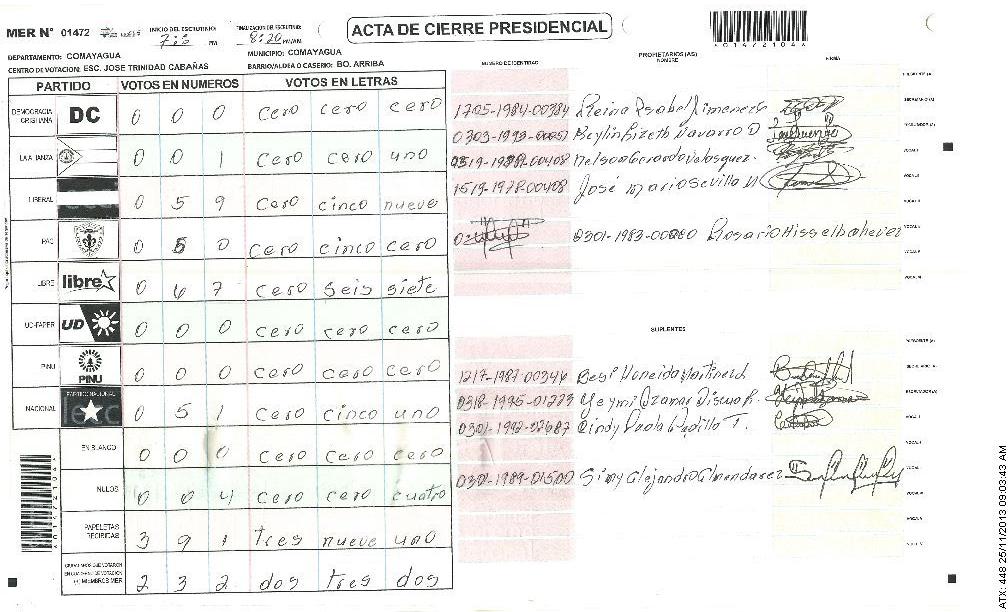 MER N° 01472
INICIO DEL ESCRUTINIO:
FINALIZACION DEL ESCRUTINIO:
8:20
ACTA DE CIERRE PRESIDENCIAL
DEPARTAMENTO: COMAYAGUA
MUNICIPIO: COMAYAGUA
CENTRO DE VOTACION: ESC. JOSE TRINIDAD CABAÑAS
BARRIO/ALDEA O CASERIO: BO. ARRIBA
PARTIDO VOTOS EN NUMEROS VOTOS EN LETRAS
DEMOCRACIA CRISTIANA DC 0 0 0 cero cero cero
LA ALIANZA 0 0 1 cero cero uno
LIBERAL 0 5 9 cero cinco nueve
PAC 0 5 0 cero cinco cero
LIBRE libre 0 6 7 cero seis siete
UD-FAPER UD 0 0 0 cero cero cero
PINU PINU 0 0 0 cero cero cero
NACIONAL PARTIDO NACIONAL 0 5 1 cero cinco uno
EN BLANCO 0 0 0 cero cero cero
NULOS 0 0 4 cero cero cuatro
PAPELETAS RECIBIDAS 3 9 1 tres nueve uno
2 3 2 dos tres dos
NUMERO DE IDENTIDAD
PROPIETARIOS (AS)
NOMBRE
FIRMA
1705-1984-00384 Reina Isabel Jimenez
0303-1993-00057 Keylin Lizeth Navarro O
Nelson Gerardo Velasquez.
1519-1978-00408 José Mario Sevilla
0301-1983-00080 Rosario
SUPLENTES
1217-1987-00344 Martinez
0318-1995-01223
Cindy Paola Padilla T.
0301-1989-01500 Alejandro Almendarez
ATX: 448 25/11/2013 09:03:43 AM